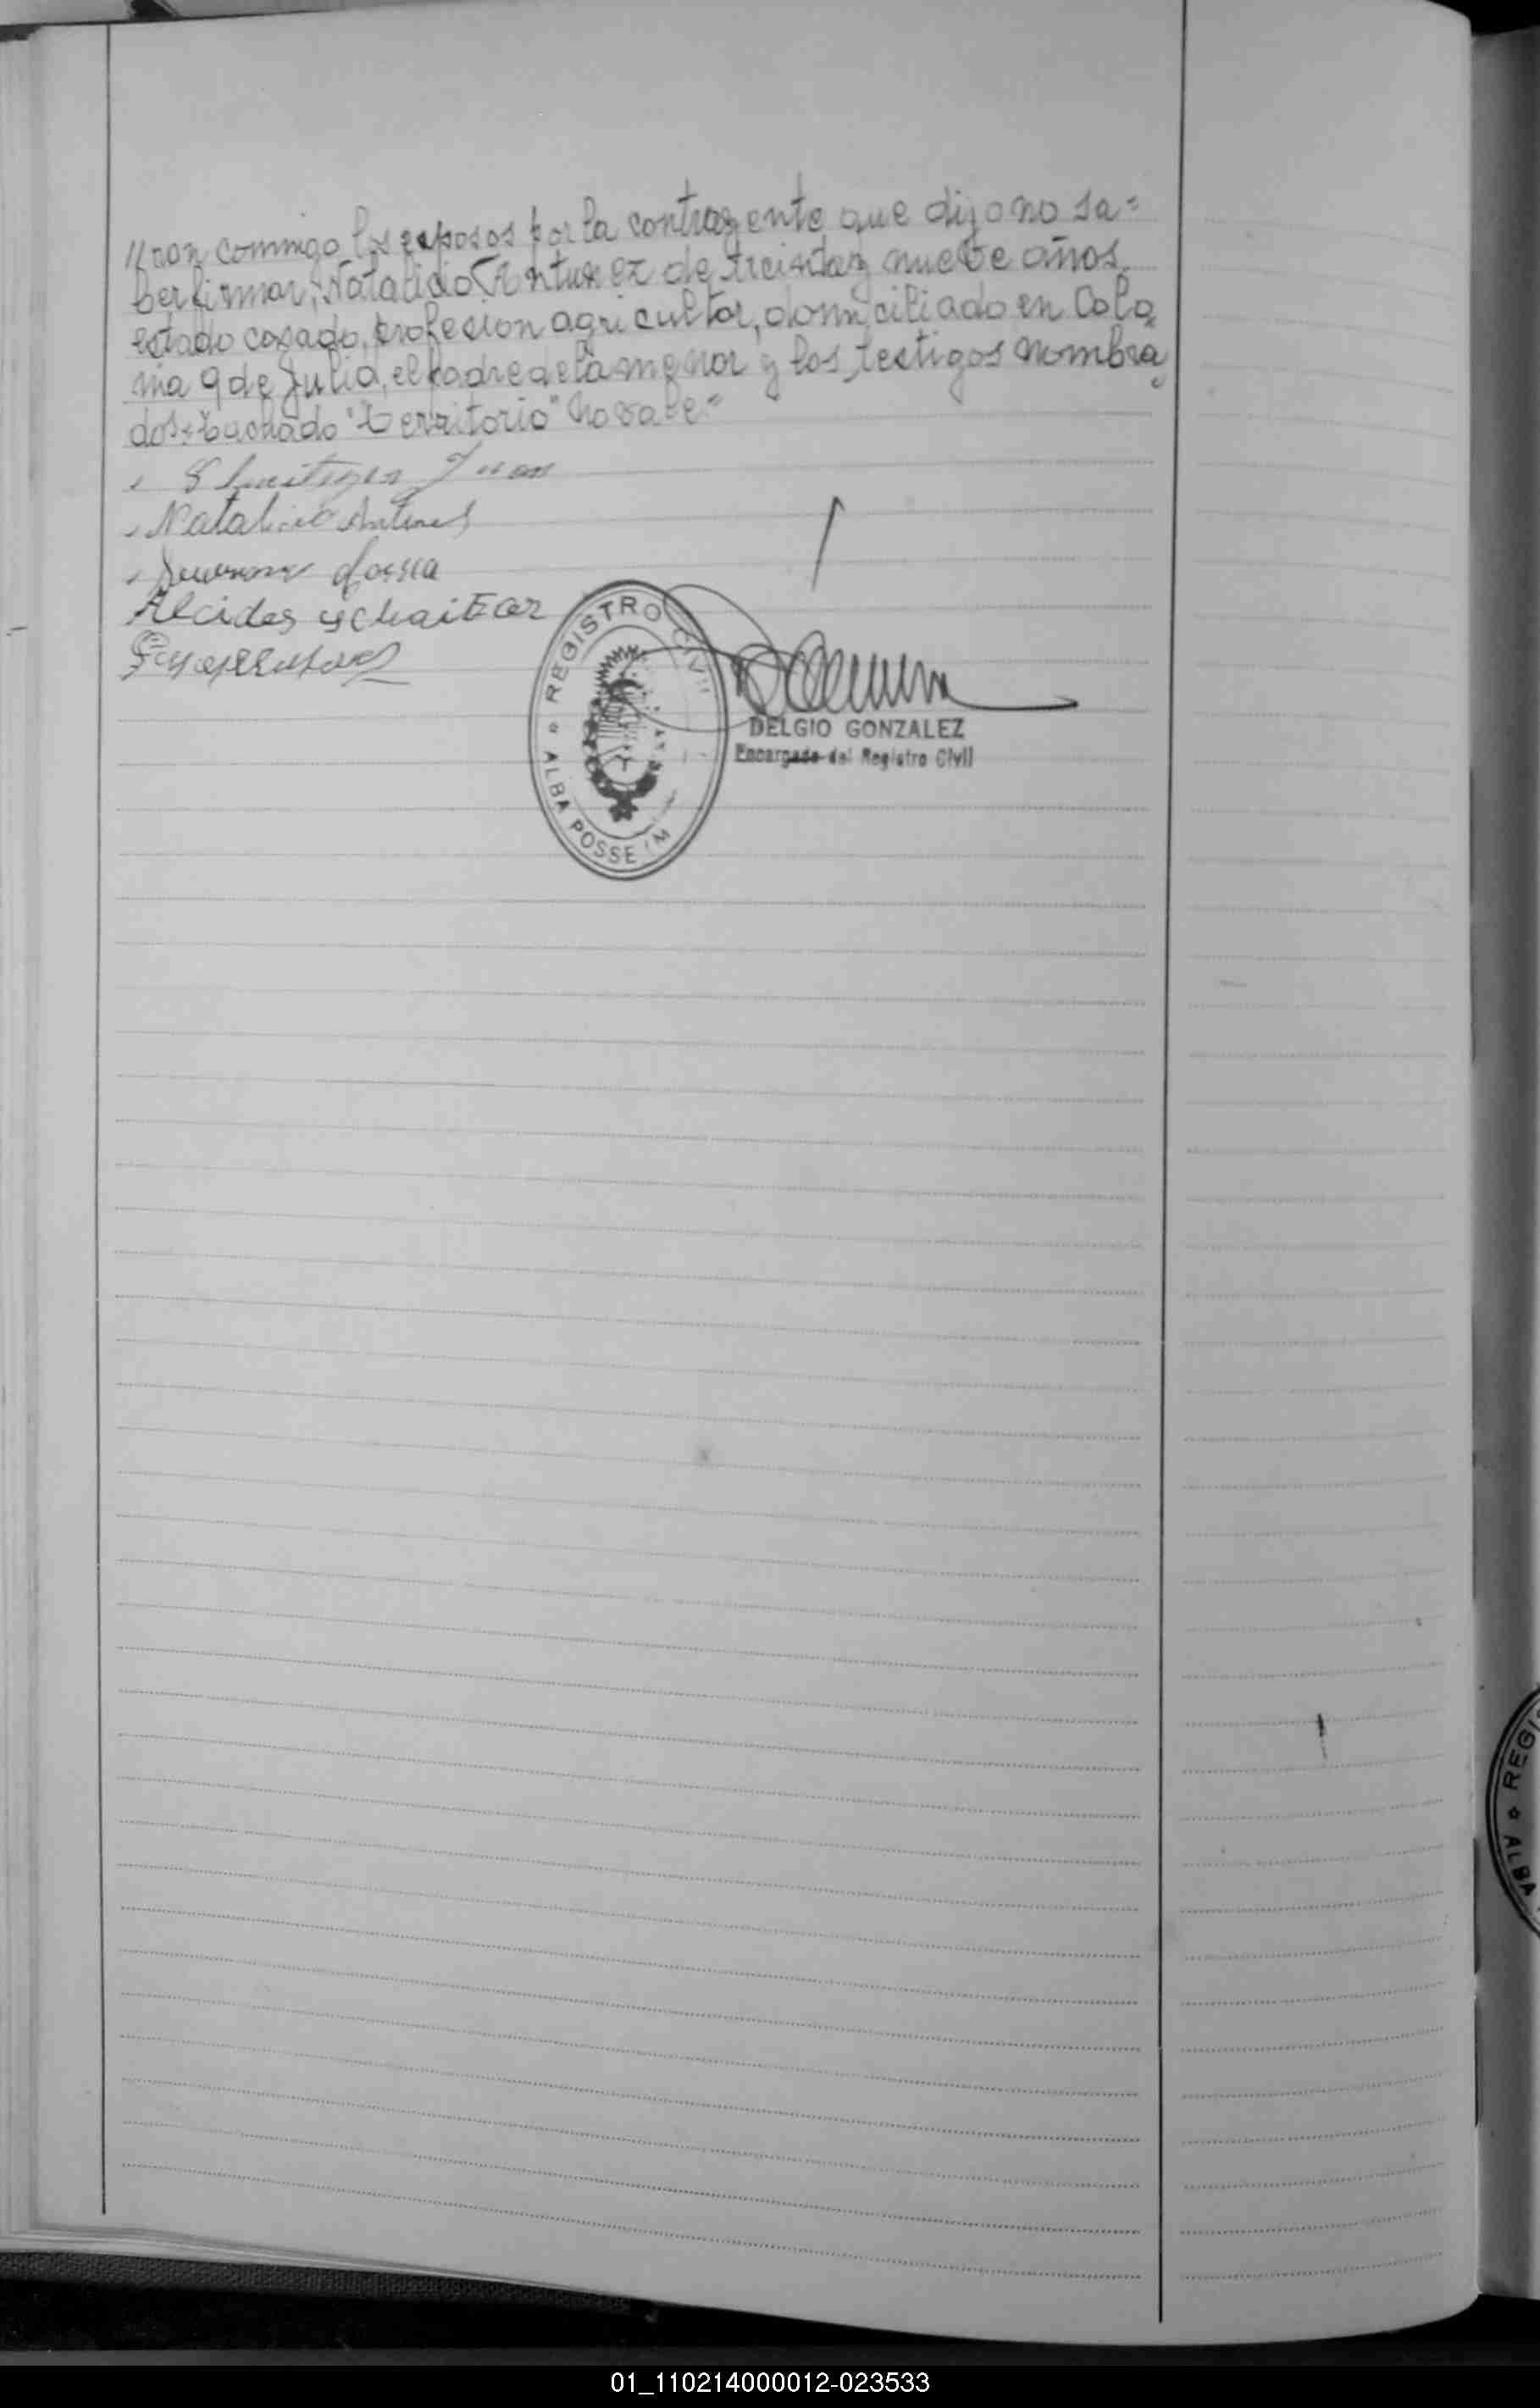 //ron conmigo los esposos por la contrayente que dijo no sa=
ber firmar, Natalicio Antunez de treinta y nueve años,
estado casado, profesion agricultor, domiciliado en Colo
nia 9 de Julio, el padre de la menor y los testigos nombra
dos= tachado "Territorio" no vale=
Juan
Natalicio Antunes
Alcides
REGISTRO CIVIL
ALBA POSSE (M
DELGIO GONZALEZ
Encargado del Registro Civil
REGIS
ALBA
01_110214000012-023533